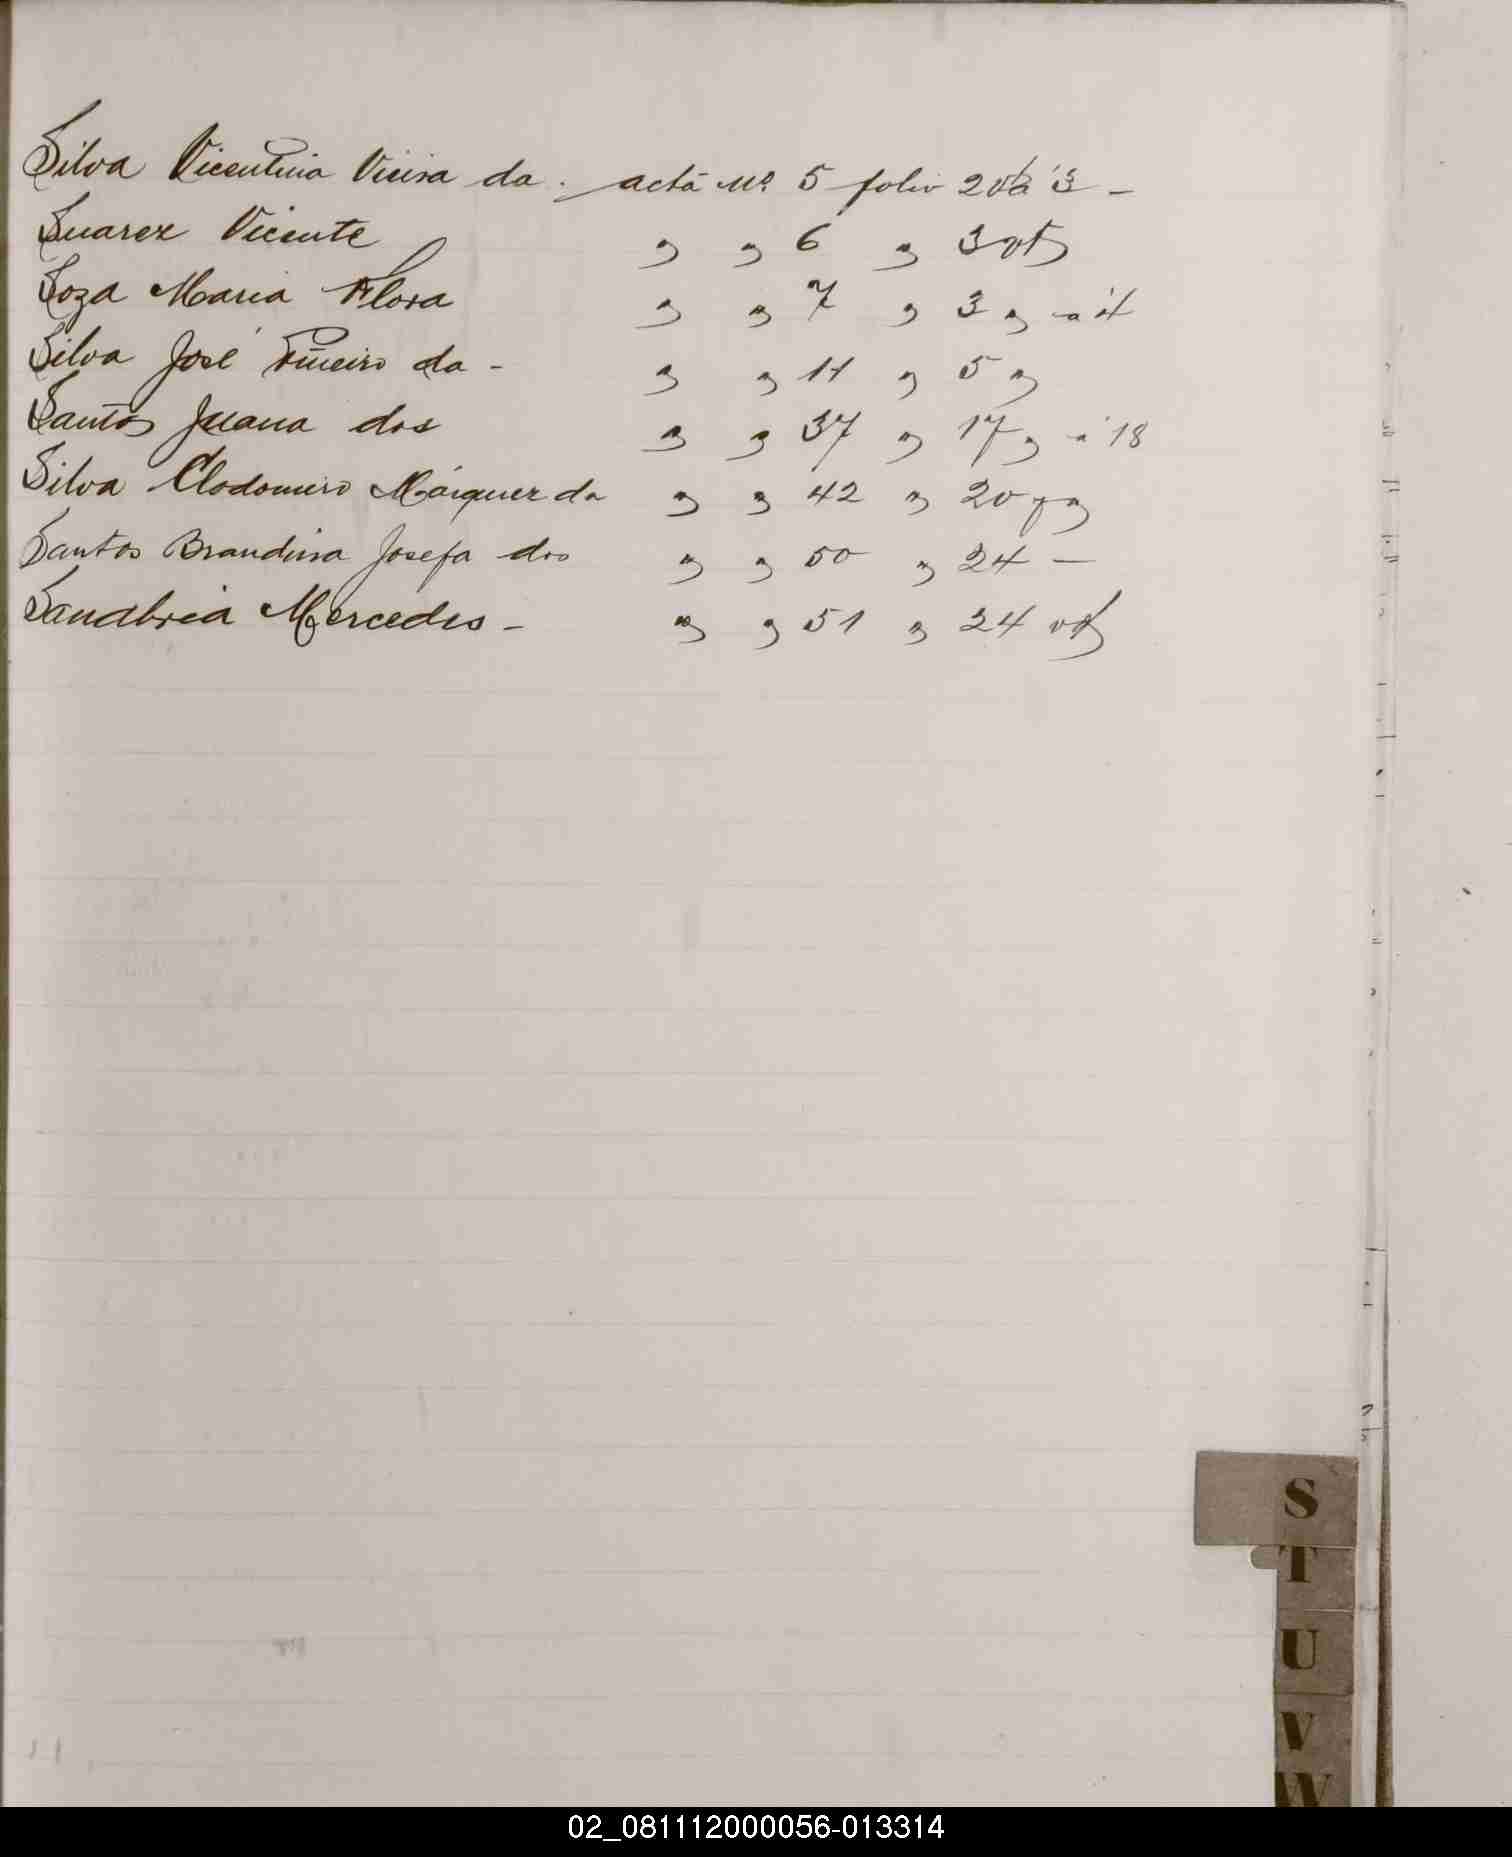 Silva Vicentina Vieira da. acta Nº 5 folio 2 vta á 3 -
Suarez Vicente " " 6 " 3 vta
Soza Maria Flora " " 7 " 3 " á 4
Silva José Piñeiro da - " " 11 " 5 "
Santos Juana dos " " 37 " 17 " á 18
Silva Clodomiro Márquez da " " 42 " 20
Santos Brandina Josefa dos " " 50 " 24 -
Sanabria Mercedes - " " 51 " 24 vta
S
T
U
V
W
02_081112000056-013314